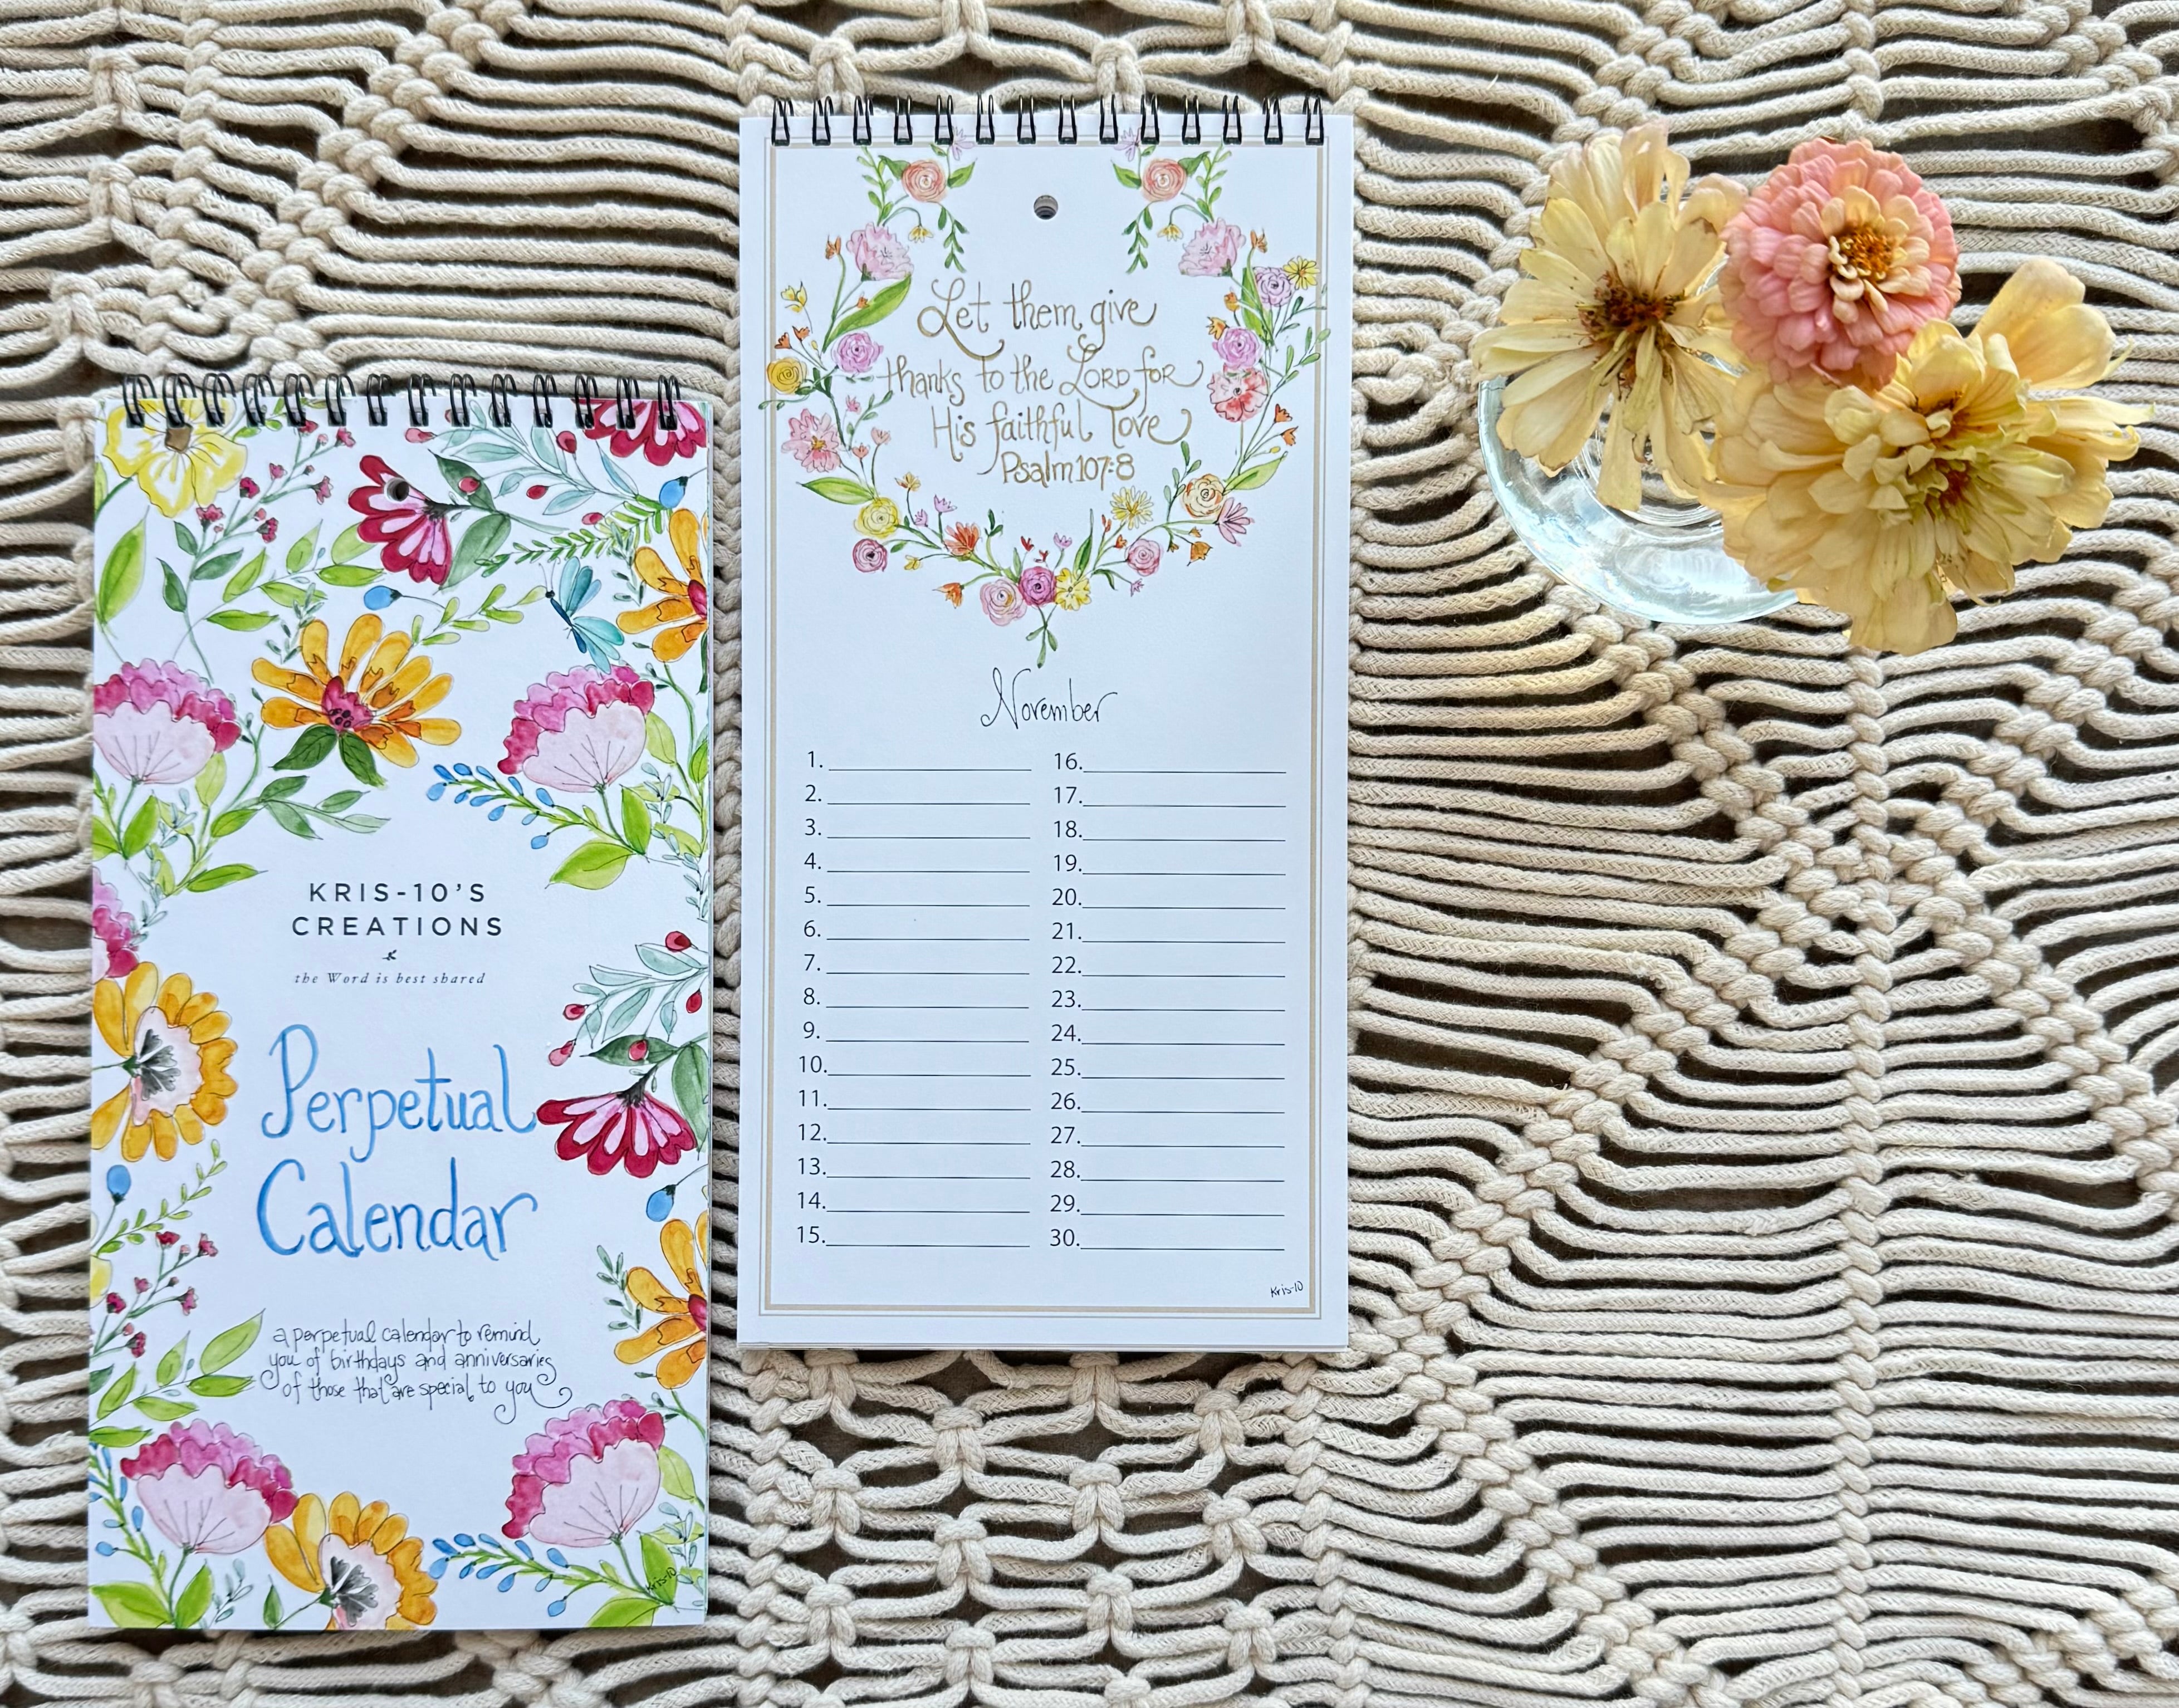 KRIS-10'S
CREATIONS
the Word is best shared
Perpetual
Calendar
a perpetual calendar to remind
you of birthdays and anniversaries
of those that are special to you
Kris-10
Let them give
thanks to the LORD for
His faithful love
Psalm 107:8
November
1.
2.
3.
4.
5.
6.
7.
8.
9.
10.
11.
12.
13.
14.
15.
16.
17.
18.
19.
20.
21.
22.
23.
24.
25.
26.
27.
28.
29.
30.
Kris-10